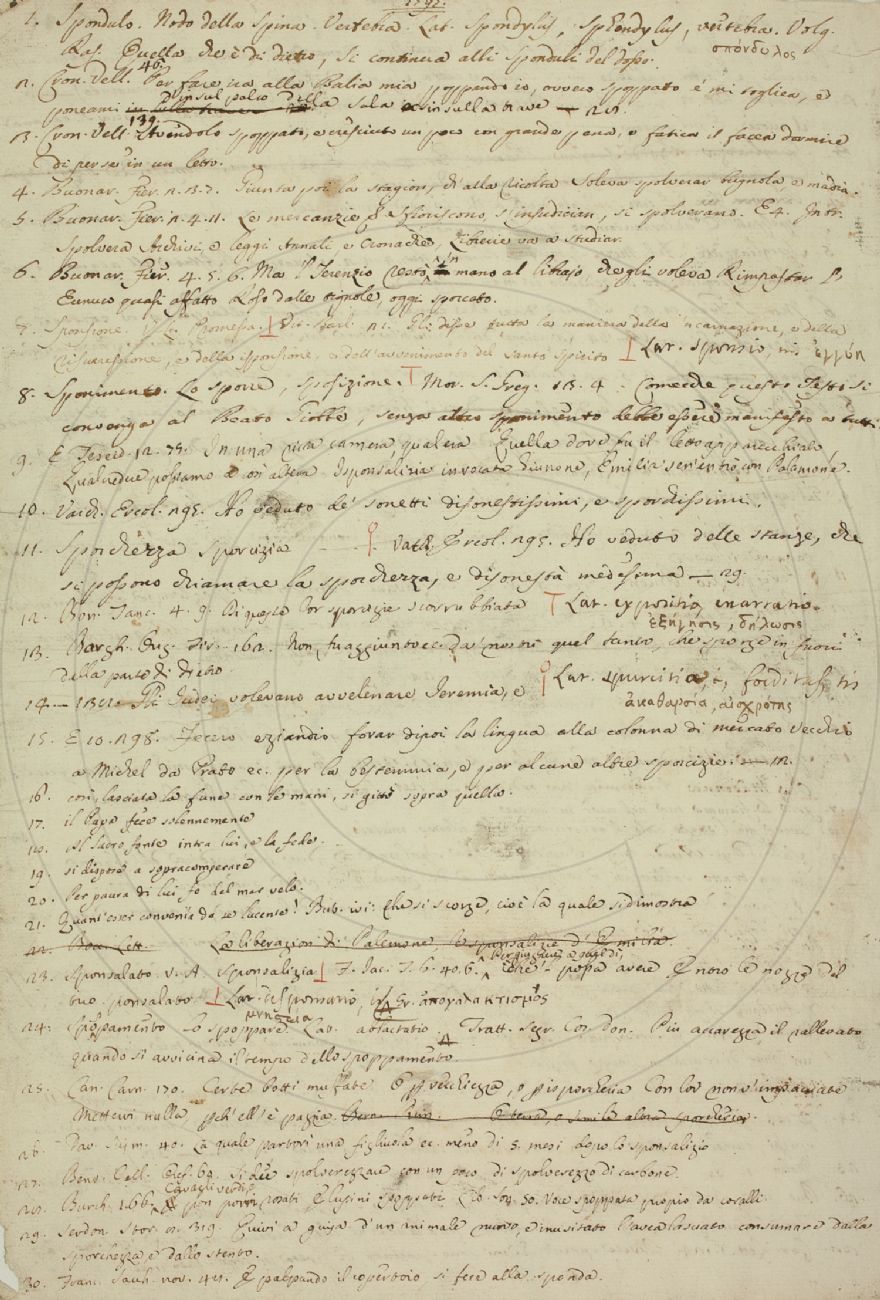 1792.
1. Spondulo. Nodo della Spina. Vertebra. Lat. Spondylus, Sphondylus, vertebra. Volg.
σπόνδυλος
Ras. Quella che è di dietro, si continua alli sponduli del dosso.
2. Cron. Vell. 46. Per fare ira alla Balia mia poppando io, ovvero spoppato è mi toglica, e
poneami in sul palco della sala o in sulla trave — 29.
3. Cron. Vell. 139. Avendolo spoppato, e cresciuto un poco con grande pena, e fatica il facea dormire
di per se in un letto.
4. Buonar. Fier. 2. 3. 7. Giunta poi la stagion, ch'alla ricolta soleva spolverar bugnola e madia.
5. Buonar. Fier. 2. 4. 11. Le mercanzie si sfioriscono, s'insudician, si spolverano. E 4. Intr.
Spolvera Archivi, e leggi Annali, e Cronache, Librerie va a studiar.
6. Buonar. Fier. 4. 5. 6. Ma il Terenzio restò in mano al librajo che gli voleva Rimpastar l'
Eunuco quasi affatto Roso dalle tignole, oggi sporcato.
7. Sponsione. Promessa. Gli disse tutta la maniera della incarnazione, e della
risurressione, e della sponsione, e dell'avvenimento del Santo Spirito Lat. sponsio, nis ἐγγύη
8. Sponimento. Lo sporre, sposizione. Mor. S. Greg. 13. 4. Comecche questo Testo si
convenga al Beato Giobbe, senza altro sponimento debbe essere manifesto a tutti
9. E Teseid. 12. 75. In una camera qual era Quella dove fu il letto apparecchiato
Qual che possiamo con altera Isponsalizia invocata Giunone, Emilia sen'entrò con Palamone.
10. Varch. Ercol. 295. Ho veduto de' sonetti disonestissimi, e sporchissimi.
11. Sporchezza Sporcizia — Varch. Ercol. 295. Ho veduto delle stanze, che
si possono chiamare la sporchezza, e disonestà medesima — 29.
12. Bon. Tanc. 4. 9. Di queste lor sporcizie scorrubbiata Lat. expositio, enarratio.
ἐξήγησις, δήλωσις
13. Borgh. Orig. Fir. 162. Non fu aggiunto ec. da' nostri quel tanto, che sporge in fuori
dalla parte di dietro. Lat. spurcitia, æ, foeditas, tis
14. — Gli Judei volevano avvelenare Jeremia, e
ἀκαθαρσία, αἰσχρότης
15. E 10. 298. Fecero eziandio forar dipoi la lingua alla colonna di mercato vecchio
a Michel da Prato ec. per la bestemmia, e per alcune altre sporcizie. — 12.
16. così, lasciata la fune con le mani, si gittò sopra quella.
17. il Papa fece solennemente
18. Al sacro fonte intra lui, e la fede.
19. si dispose a sopracomperare
20. Per paura di lui fe' del mar velo.
21. Quant'esser convenia da se lucente! But. ivi: Che si scorge, cioè la quale si dimostra
22. Bon. Lett. La liberazion di Palemone Isponsalizie d'Emilia.
23. Sponsalato v. A. Sponsalizia F. Jac. T. 6. 40. 6. Perchè possa avere Entro le nozze del
tuo sponsalato Lat. Gr. ἀπογαλακτισμός
μνηστεία
24. Spoppamento Lo spoppare. Lat. ablactatio. Tratt. Segr. Cos. Don. Più accarezza il rallevato
quando si avvicina il tempo dello spoppamento.
25. Can. Carn. 170. Certe botti muffate O per vecchiezza, o per isporcheria Con lor non v'impacciate
Mettervi nulla, perch'ell'è pazzia.
26. Dav. Scism. 40. La quale partorì una figliuola ec. meno di 5. mesi dopo lo sponsalizio
27. Benv. Cell. Oref. 69. Si dee spolverezzare con un poco di spolverezzo di carbone.
28. Burch. 1. 66. Cavagli verdi, e E lupini spoppati. E lo son. 50. Voce spoppata proprio da coralli.
29. Serdon. Stor. 2. 319. Quivi a guisa d'un animale nuovo, e inusitato l'avea lasciato consumare dalla
sporchezza, e dallo stento.
30. Franc. Sacch. nov. 44. E palpando il copertoio, si fece alla sponda.